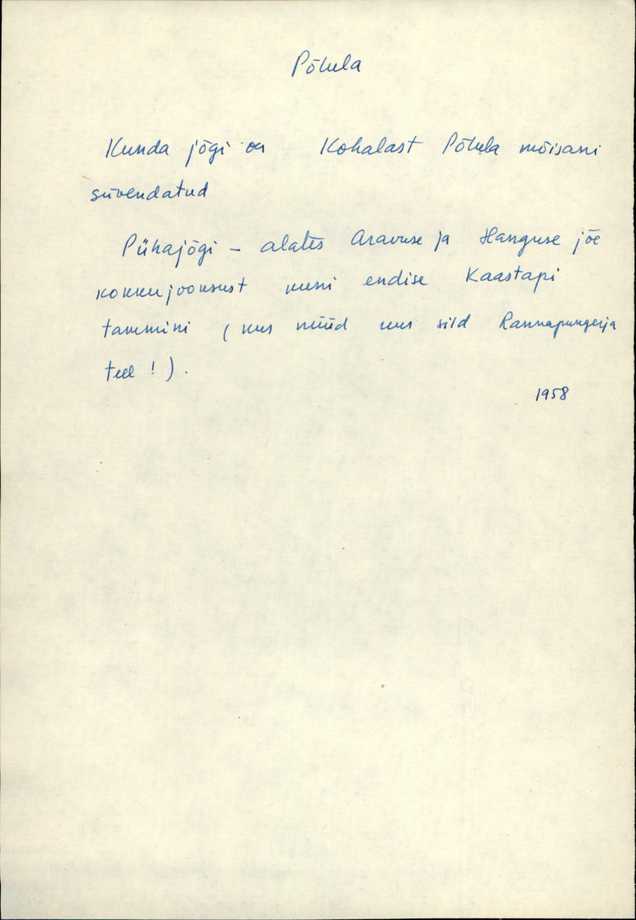 Põlula
Kunda jõgi on Kohalast Põlula mõisani
süvendatud
Pühajõgi – alates Aravuse ja Hanguse jõe
kokkujooksust kuni endise Kaastapi
tammini (kus nüüd uus sild Rannapungerja
teel!).
1958